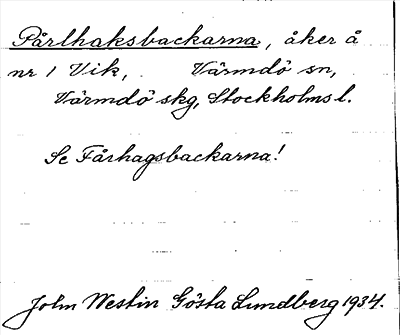 Pårlhaksbackarna, åker å
nr 1 Vik, Värmdö sn,
Värmdö skg, Stockholms l.
Se Fårhagsbackarna!
John Westin Gösta Lundberg 1934.